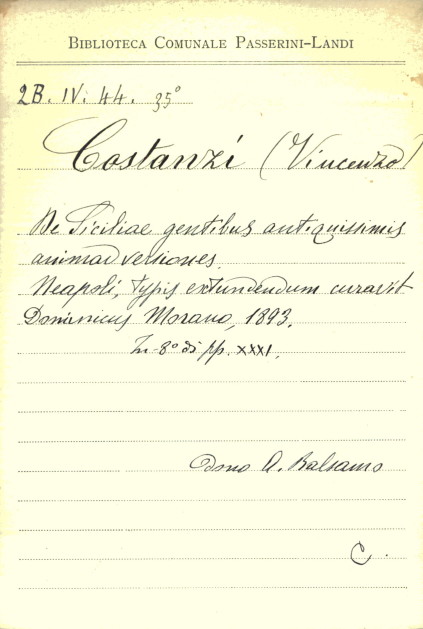 BIBLIOTECA COMUNALE PASSERINI-LANDI
2B. IV. 44. 35°
Costanzi (Vincenzo)
De Siciliae gentibus antiquissimis
animadversiones.
Neapoli, typis extundendum curavit
Dominicus Morano, 1893.
In-8° di pp. XXXI.
dono A. Balsamo
C.